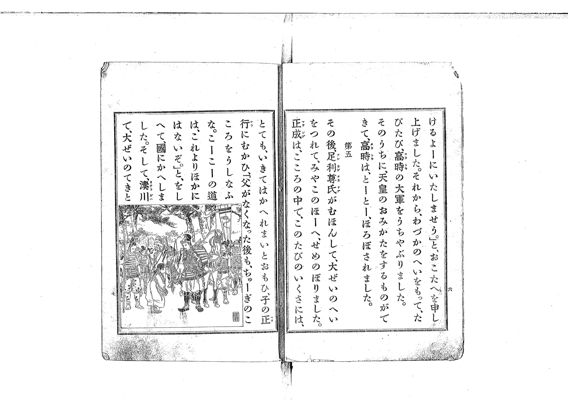 けるよーにいたしませう。」と、おこたへを申し
上げました。それから、わづかのへいをもって、た
びたび高時の大軍をうちやぶりました。
そのうちに、天皇のおみかたをするものがで
きて、高時は、とーとー、ほろぼされました。
第五
その後、足利尊氏が、むほんして、大ぜいのへい
をつれて、みやこのほーへ、せめのぼりました。
正成は、こころの中で、このたびのいくさには、
六
とても、いきてはかへれまいとおもひ、子の正
行にむかひ、「父がなくなった後も、ちゅーぎのこ
ころをうしなふ
な。こーこーの道
は、これよりほかに
はないぞ。」と、をし
へて、國にかへしま
した。そして、湊川
で、大ぜいのてきと